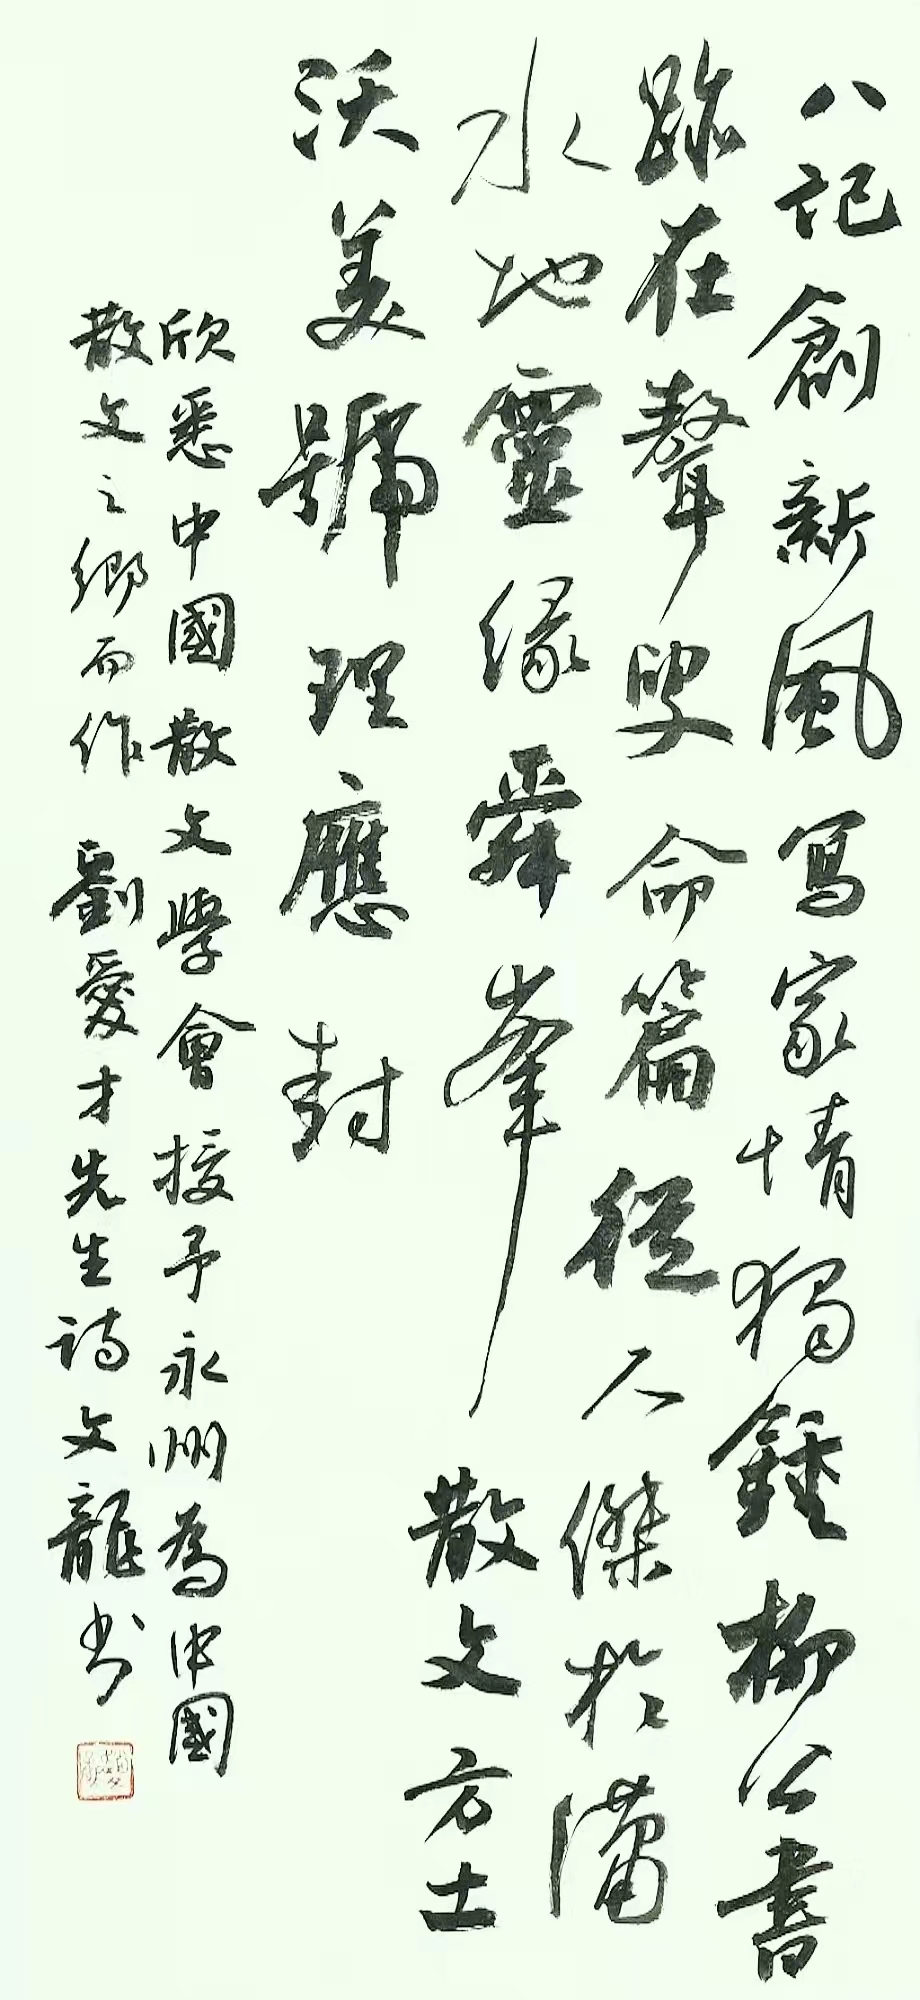 八記創新風寫家情獨鍾柳公書
跡在聱叟命篇從人傑於瀟
水地靈緣舜峯散文方土
沃美號理應封
欣悉中國散文學會授予永州為中國
散文之鄉而作 劉愛才先生詩文龍书